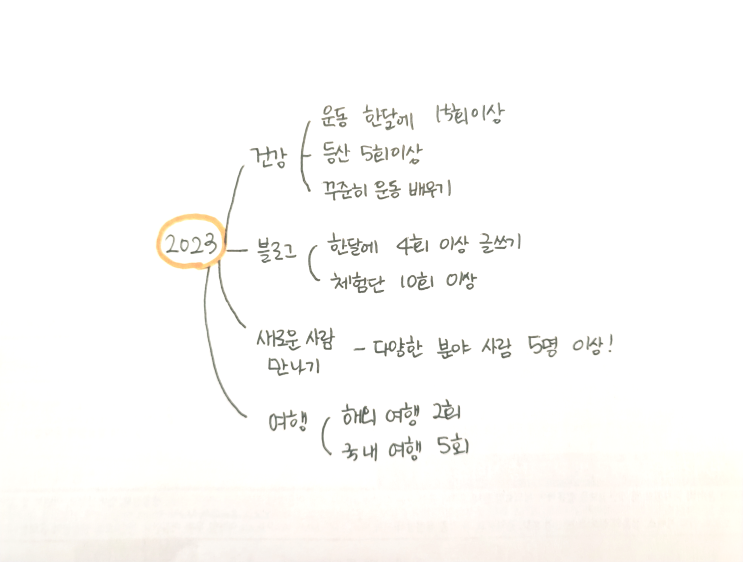 2023
건강
운동 한달에 15회이상
등산 5회이상
꾸준히 운동 배우기
블로그
한달에 4회 이상 글쓰기
체험단 10회 이상
새로운 사람
만나기
- 다양한 분야 사람 5명 이상!
여행
해외 여행 2회
국내 여행 5회